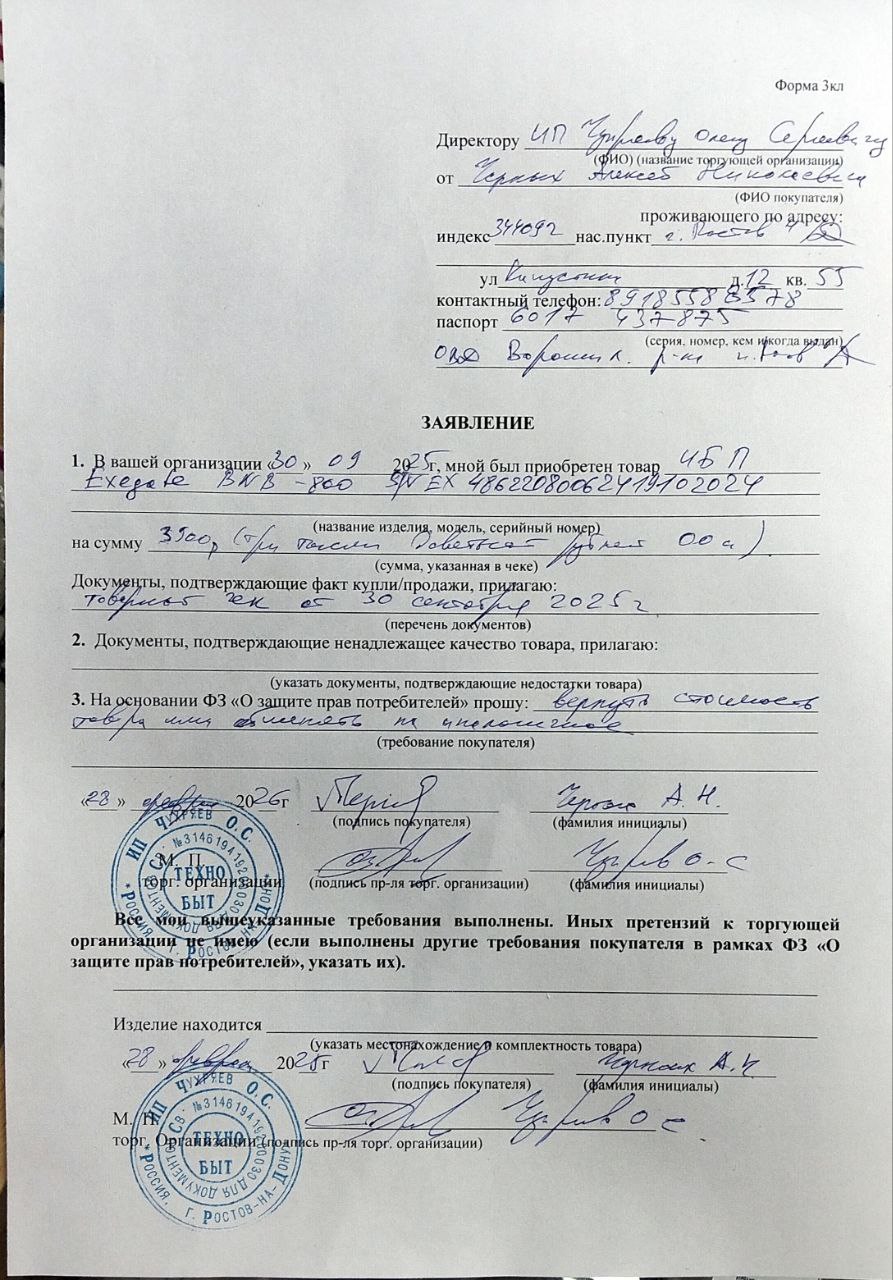 Форма 3кл
Директору ИП Чухряеву Олегу Сергеевичу
(ФИО) (название торгующей организации)
от Черных Алексей Николаевич
(ФИО покупателя)
проживающего по адресу:
индекс 344092 нас.пункт г. Ростов н/Д
ул д. 12 кв. 55
контактный телефон: 8918558 578
паспорт 6017 437875
(серия, номер, кем и когда выдан)
ОВД Ворошил. р-на г.
ЗАЯВЛЕНИЕ
1. В вашей организации «30» 09 2025г, мной был приобретен товар ИБП
Exegate BNB-800 S/N EX 4862208006241910 2024
(название изделия, модель, серийный номер)
на сумму 3900р (три тысячи девятьсот рублей 00 к)
(сумма, указанная в чеке)
Документы, подтверждающие факт купли/продажи, прилагаю:
товарный чек от 30 сентября 2025г
(перечень документов)
2. Документы, подтверждающие ненадлежащее качество товара, прилагаю:
(указать документы, подтверждающие недостатки товара)
3. На основании ФЗ «О защите прав потребителей» прошу: вернуть стоимость
товара или обменять на аналогичное
(требование покупателя)
«28» февраля 2026г Черных А.Н.
(подпись покупателя) (фамилия инициалы)
М. П. Чухряев О.С
торг. организации (подпись пр-ля торг. организации) (фамилия инициалы)
ИП ЧУХРЯЕВ О.С.
СВ. №314619419200030 ДЛЯ ДОКУМЕНТОВ
ТЕХНО
БЫТ
РОССИЯ, Г. РОСТОВ-НА-ДОНУ
Все мои вышеуказанные требования выполнены. Иных претензий к торгующей
организации не имею (если выполнены другие требования покупателя в рамках ФЗ «О
защите прав потребителей», указать их).
Изделие находится
(указать местонахождение и комплектность товара)
«28» февраля 2025г Черных А.Н
(подпись покупателя) (фамилия инициалы)
М. П. Чухряев О С
торг. Организации (подпись пр-ля торг. организации)
ИП ЧУХРЯЕВ О.С.
СВ. №314619419200030 ДЛЯ ДОКУМЕНТОВ
ТЕХНО
БЫТ
РОССИЯ, Г. РОСТОВ-НА-ДОНУ